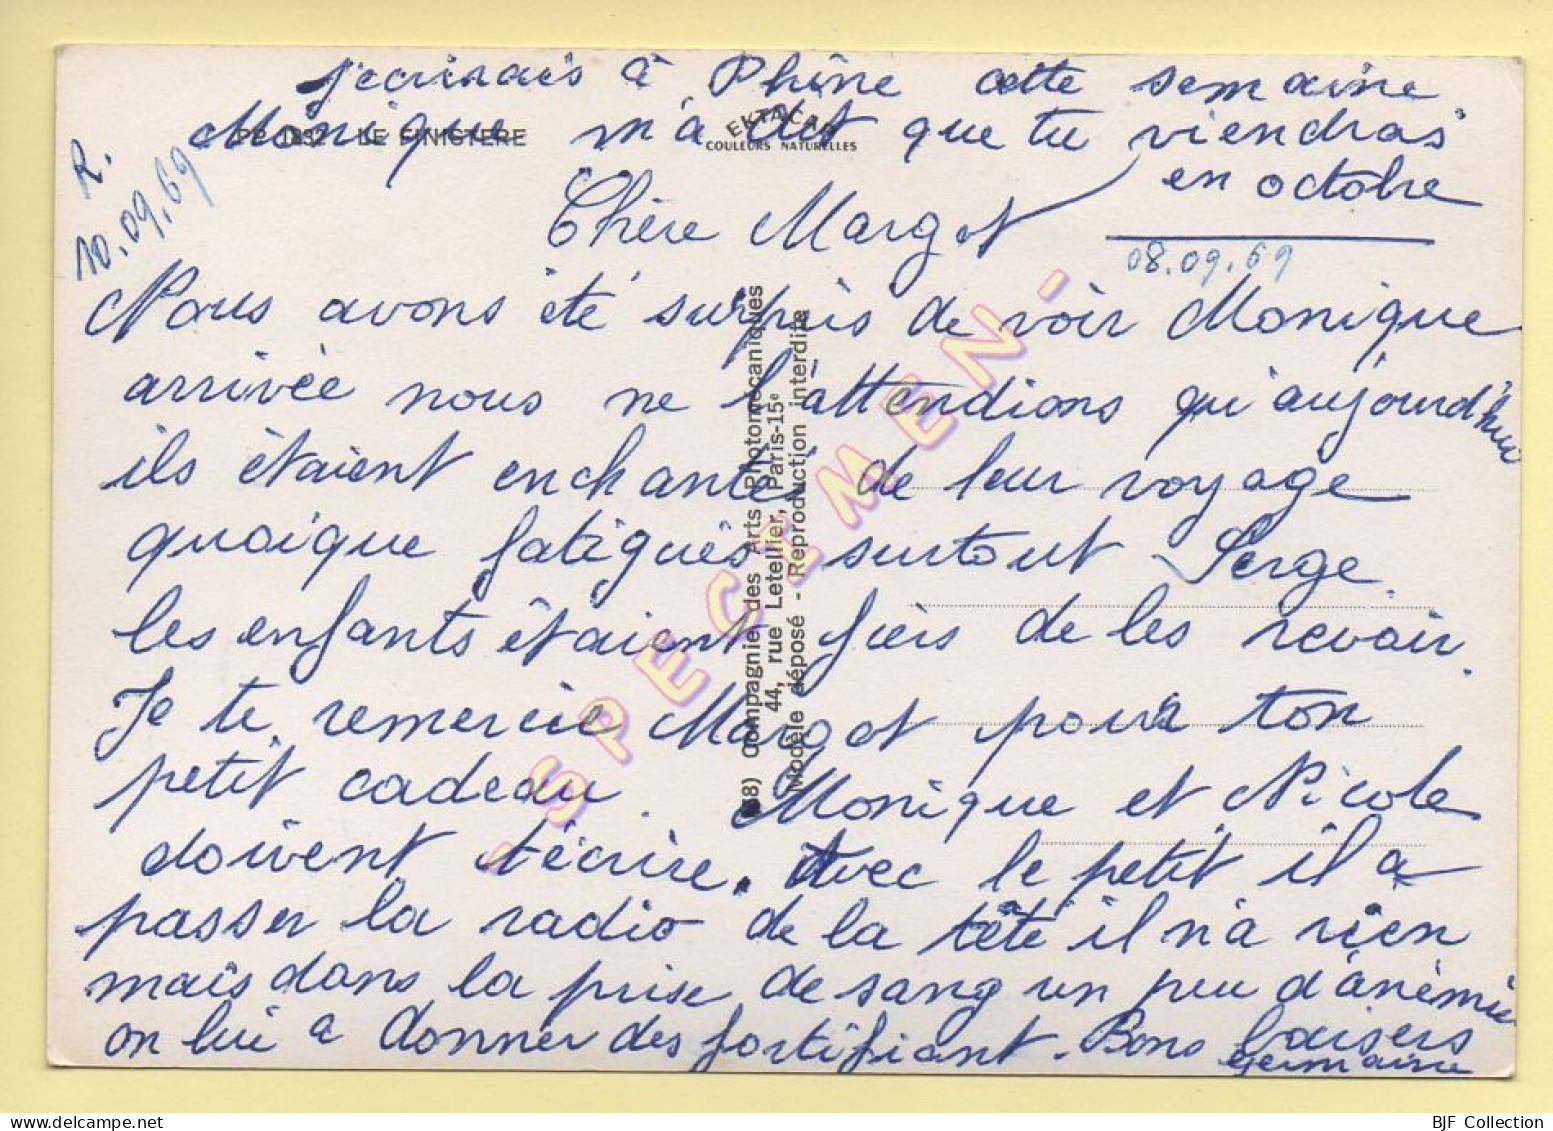 j'ecrirais à Phine cette semaine.
Monique m'a dit que tu viendras
en octobre
PP 1832 LE FINISTERE
EKTACAR
COULEURS NATURELLES
R.
10.09.69
08.09.69
Chère Margot
Nous avons été surpris de voir Monique
arrivée nous ne l'attendions qu'aujourd'hui
ils étaient enchantés de leur voyage
quoique fatigués surtout Serge.
les enfants étaient fiers de les revoir.
Je te remercie Margot pour ton
petit cadeau. Monique et Nicole
doivent t'écrire. Avec le petit il a
passer la radio de la tête il n'a rien
mais dans la prise de sang un peu d'anémie
on lui a donner des fortifiant. Bons baisers
Germaine
(68) Compagnie des Arts Photomécaniques
44, rue Letellier, Paris-15e
Modèle déposé - Reproduction interdite
- SPECIMEN -
BJF Collection